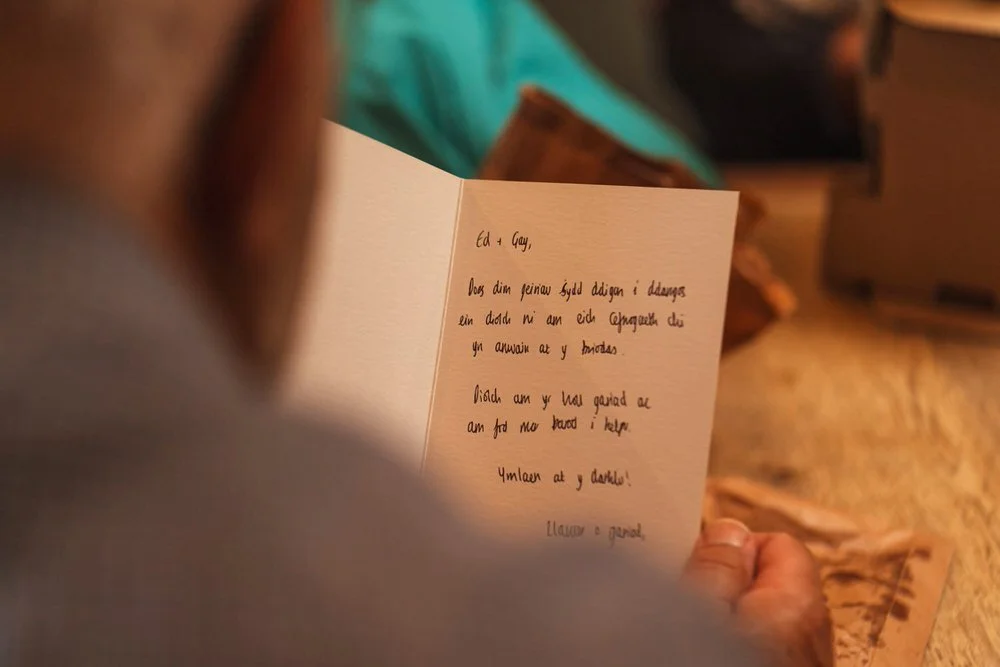 Ed + Gay,
Does dim geiriau sydd ddigon i ddangos
ein diolch ni am eich cefnogaeth chi
yn arwain at y briodas.
Diolch am yr holl gariad ac
am fod mor barod i helpu.
Ymlaen at y dathlu!
Llawer o gariad,